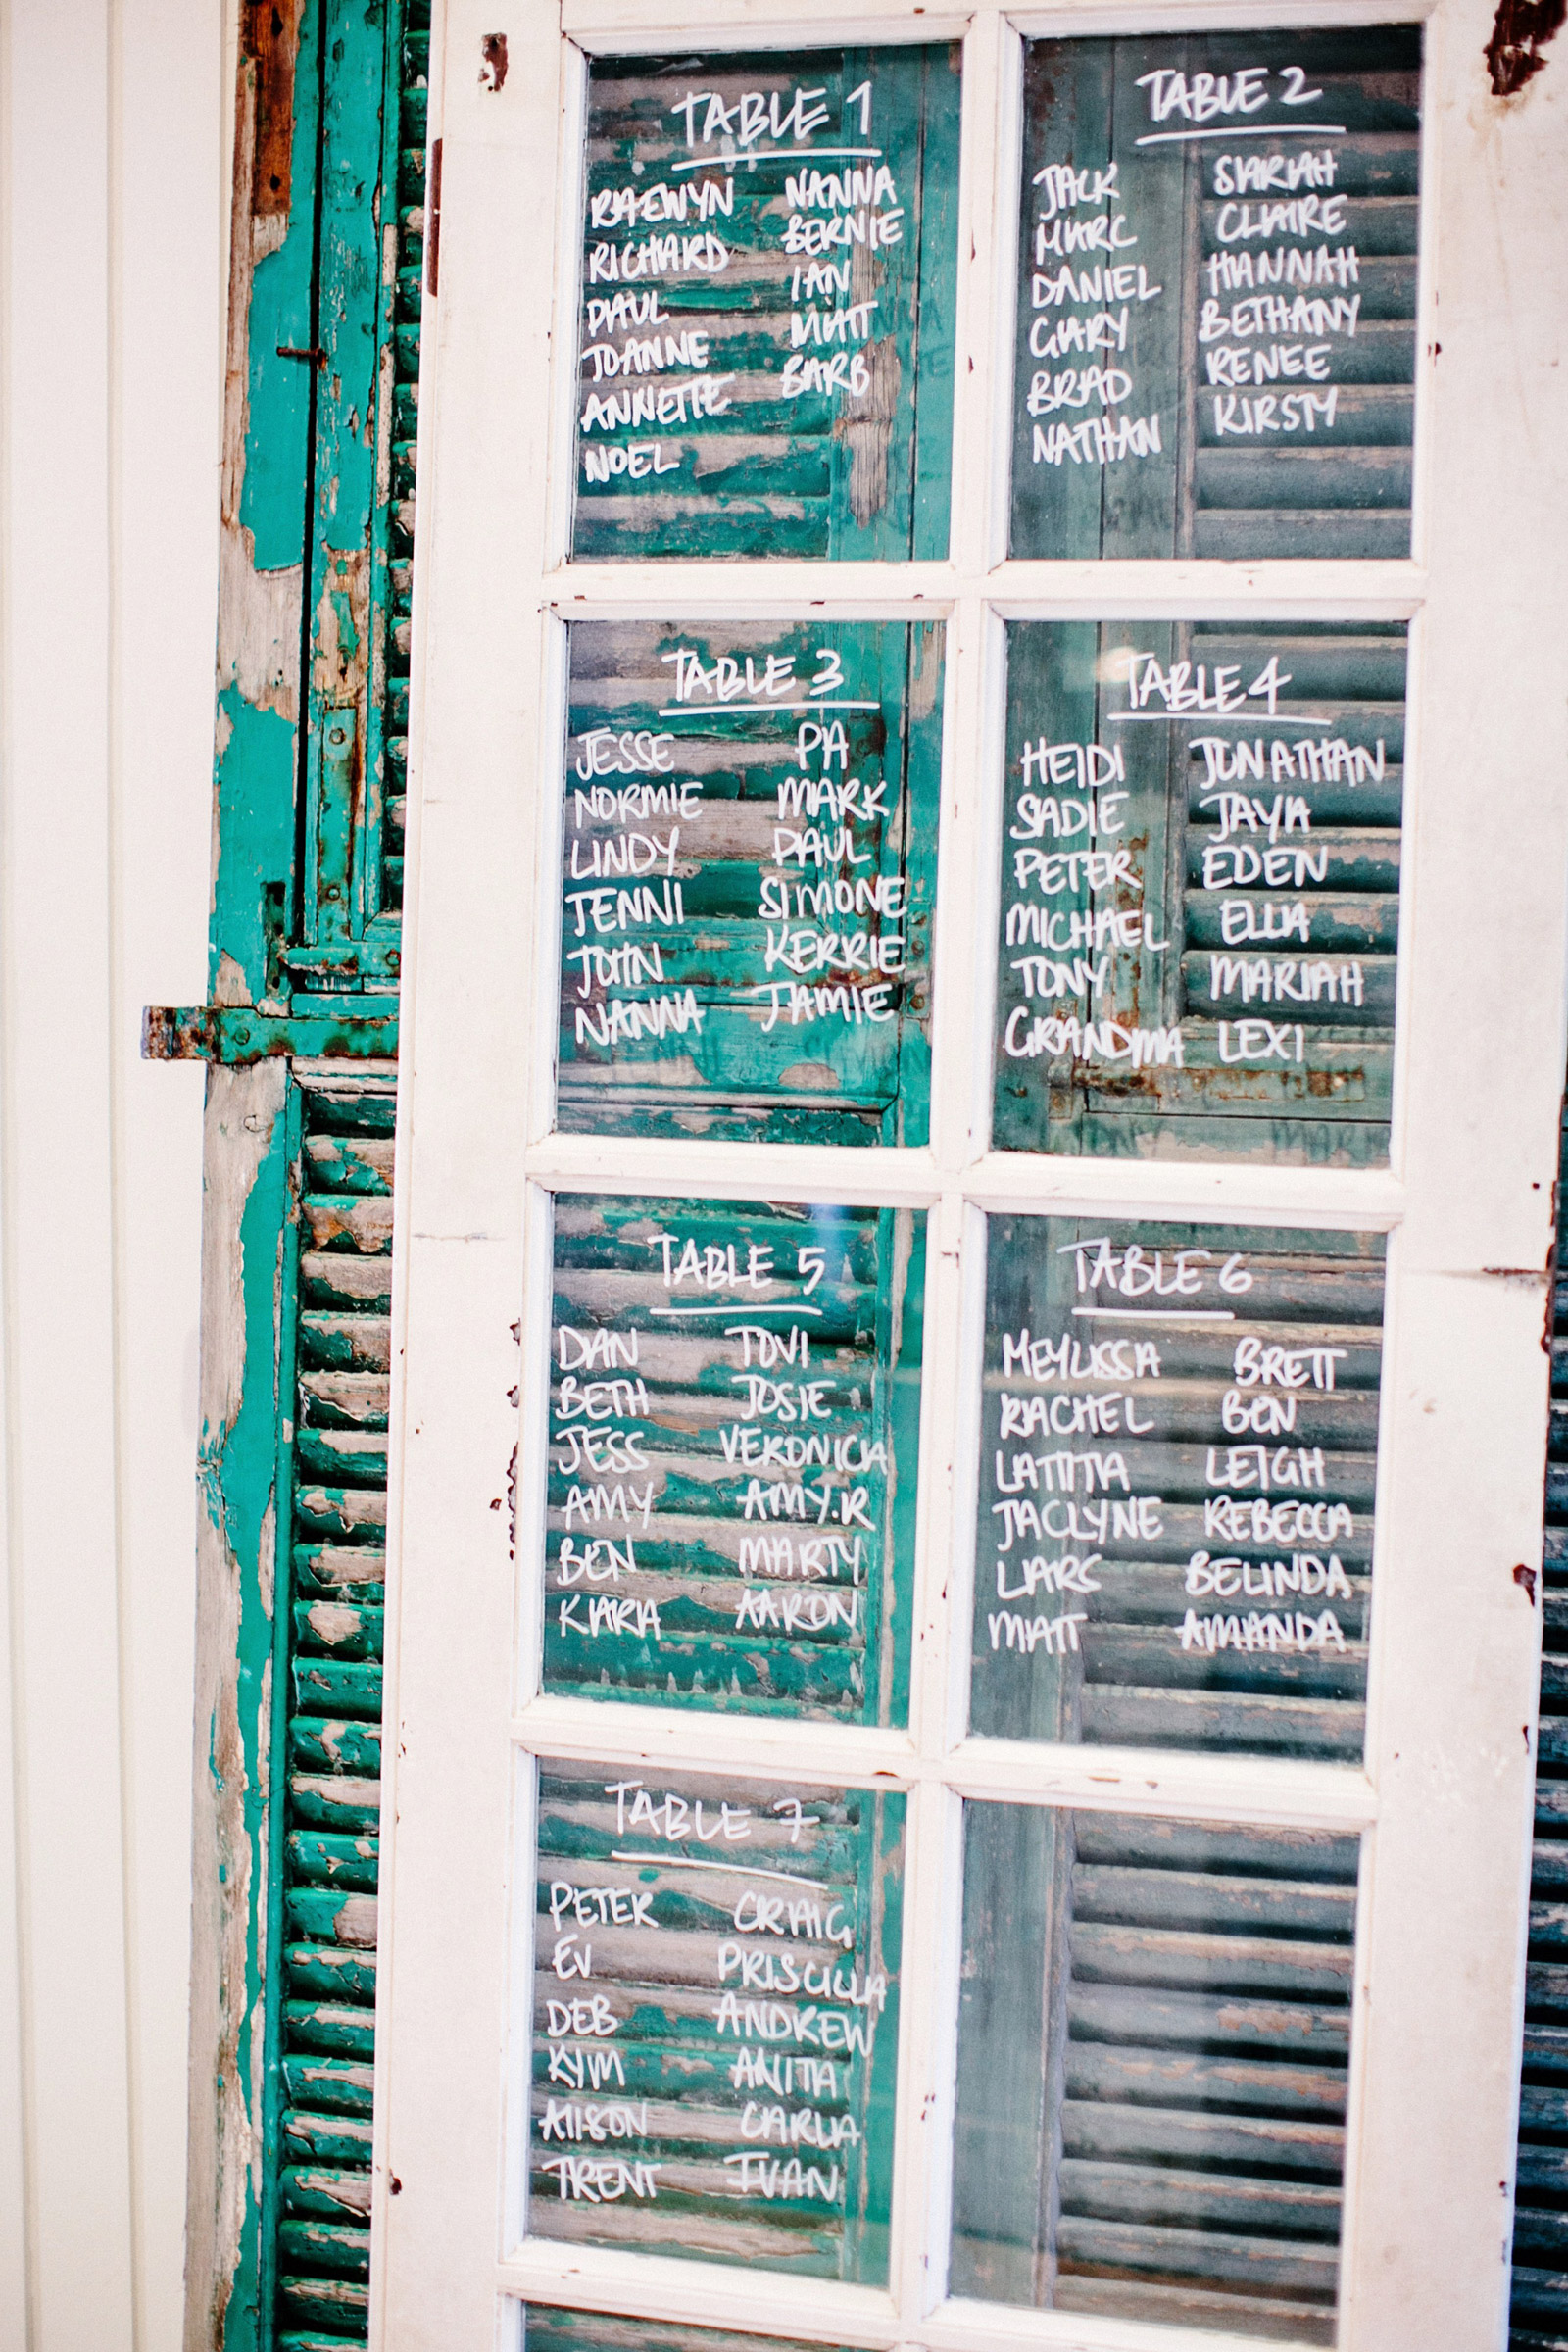 TABLE 1
RAEWYN NANNA
RICHARD BERNIE
PAUL IAN
JOANNE MATT
ANNETTE BARB
NOEL
TABLE 2
JACK SARAH
MARC CLAIRE
DANIEL HANNAH
GARY BETHANY
BRAD RENEE
NATHAN KIRSTY
TABLE 3
JESSE PA
NORMIE MARK
LINDY PAUL
JENNI SIMONE
JOHN KERRIE
NANNA JAMIE
TABLE 4
HEIDI JONATHAN
SADIE JAYA
PETER EDEN
MICHAEL ELLA
TONY MARIAH
GRANDMA LEXI
TABLE 5
DAN TOVI
BETH JOSIE
JESS VERONICA
AMY AMY.R
BEN MARTY
KIARA AARON
TABLE 6
MEYLISSA BRETT
RACHEL BEN
LATITIA LEIGH
JACLYNE REBECCA
LARS BELINDA
MATT AMANDA
TABLE 7
PETER CRAIG
EV PRISCILLA
DEB ANDREW
KYM ANITA
AlISON CARLA
TRENT IVAN